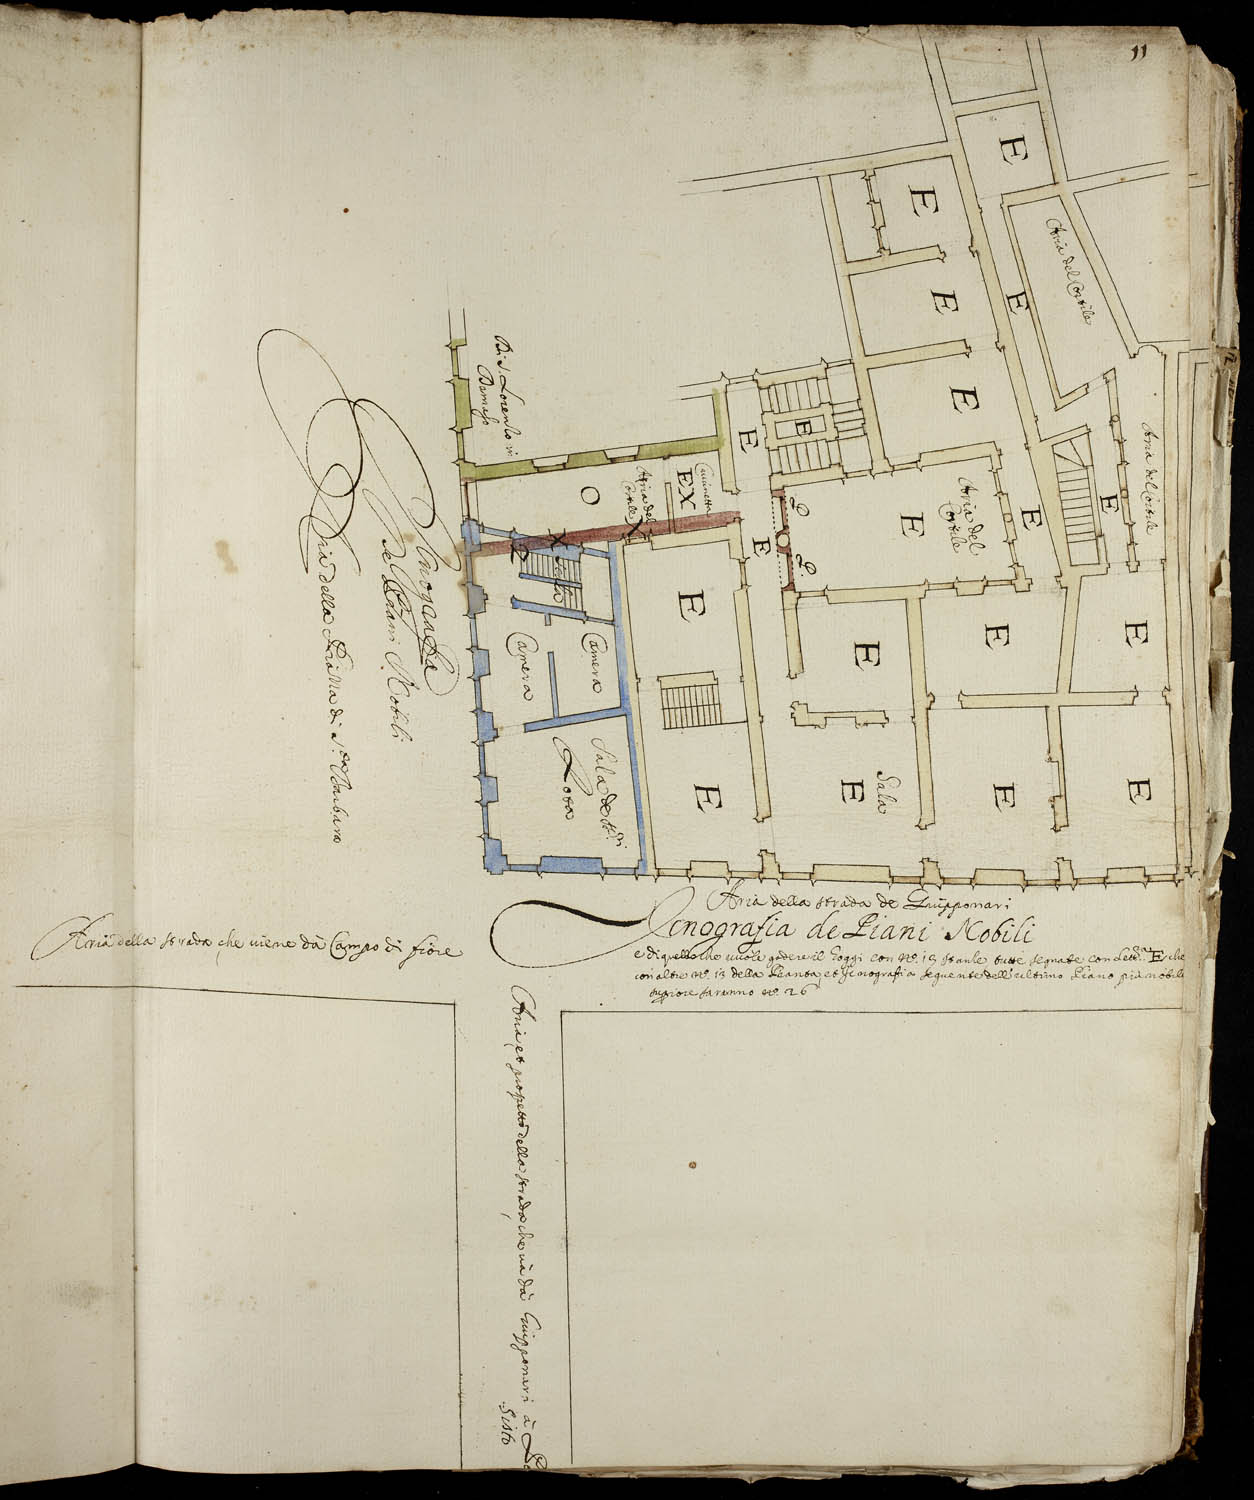 11
E
E
E
E
E
Aria del Cortile
Aria del Cortile
E
E
E
E
E
Di S. Lorenzo in
Damaso
O
Aria del
Cortile
EX
X
X
Z
L
L
E
E
Aria del
Cortile
E
E
E
E
E
E
E
E
E
E
Sala
Camera
Camera
Sala de SS.ri
Icnografia
de Piani Nobili
Aria della Piazza di S.ta Barbara
Aria della strada de Giupponari
Icnografia de Piani Nobili
e di quello che vuole godere il Poggi con N.o 13 stanze tutte segnate con lett.ra E che
con altre N.o 13 della Pianta, et Icnografia seguente dell'ultimo Piano più nobile
saranno N.o 26
Aria della strada, che viene da Campo di fiore
Aria et prospetto della strada che va da Giupponari à
Sisto